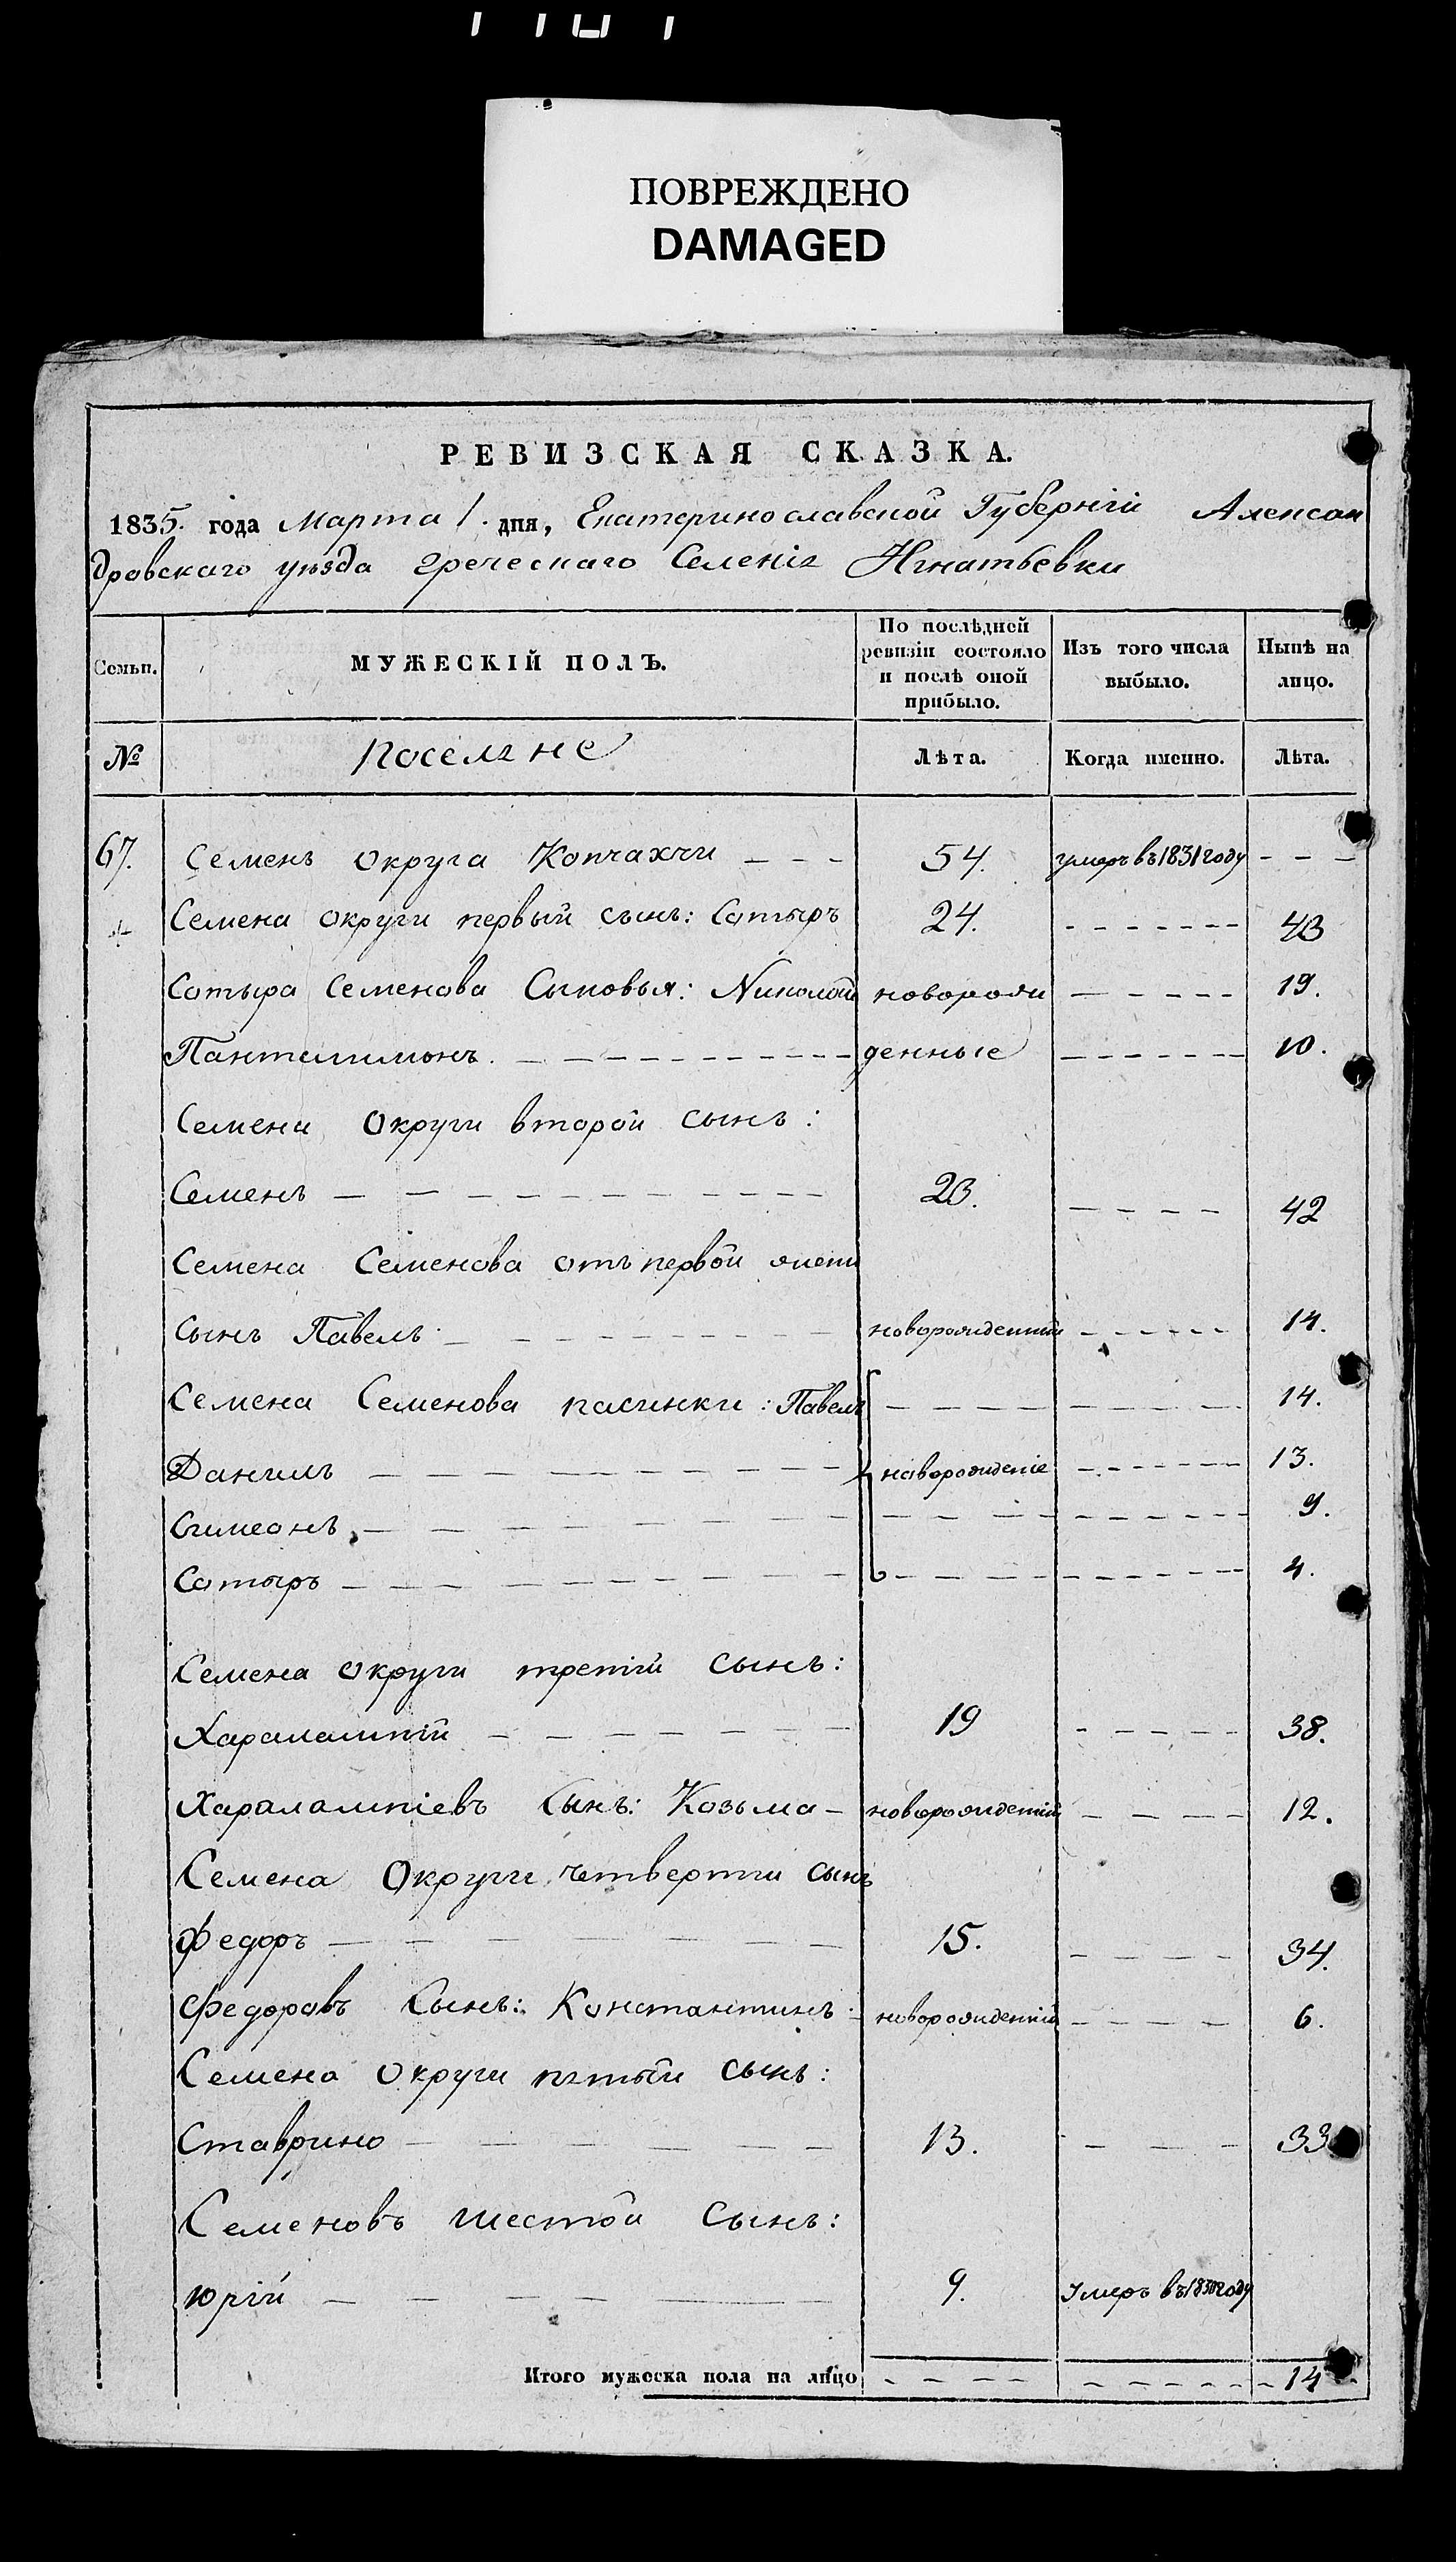 ПОВРЕЖДЕНО
DAMAGED
РЕВИЗСКАЯ СКАЗКА.
1835. года Марта 1. дня, Екатеринославской Губерніи Алексан
дровскаго уѣзда греческаго Селенія Игнатьевки
Семьи. МУЖЕСКІЙ ПОЛЪ. По послѣдней ревизіи состояло и послѣ оной прибыло. Изъ того числа выбыло. Нынѣ на лицо.
№ поселяне Лѣта. Когда именно. Лѣта.
67. Семенъ округа Копчахчи - - - 54. умеръ въ 1831 году - - -
Семена округи первый сынъ: Сотыръ 24. - - - 43
Сотыра Семенова Сыновья: Николай новорож - - - 19.
Пантелимонъ. - - - денные - - - 10.
Семена Округи второй сынъ:
Семенъ - - - 23. - - - 42
Семена Семенова отъ первой жены
Сынъ Павелъ - - - новорожденный - - - 14.
Семена Семенова пасинки: Павелъ - - - 14.
Данилъ - - - новорожденіе - - - 13.
Симеонъ - - - 9.
Сотыръ - - - 4.
Семена округи третій сынъ:
Харалампій - - - 19 - - - 38.
Харалампіевъ Сынъ: Козьма - новорожденій - - - 12.
Семена Округи четверти сынъ
Федоръ - - - 15. - - - 34.
Федоровъ Сынъ: Константинъ новорожденій - - - 6.
Семена округи пятый сынъ:
Ставрино - - - 13. - - - 33
Семеновъ шестой сынъ:
Юрій - - - 9. Умеръ въ 1830 году
Итого мужеска пола на лицо - - - 14